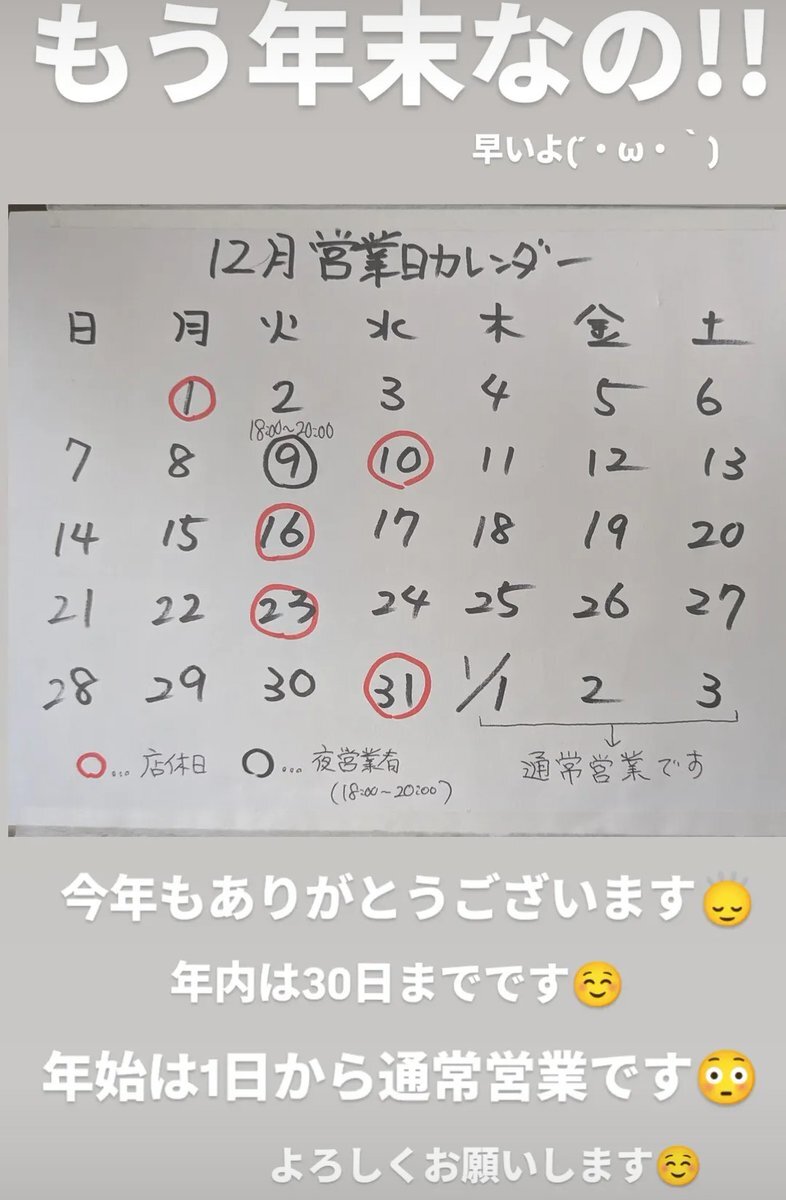 もう年末なの!!
早いよ(´・ω・｀)
12月営業日カレンダー
日 月 火 水 木 金 土
1 2 3 4 5 6
18:00~20:00
7 8 9 10 11 12 13
14 15 16 17 18 19 20
21 22 23 24 25 26 27
28 29 30 31 1/1 2 3
○…店休日 ○…夜営業有 通常営業です
(18:00~20:00)
今年もありがとうございます
年内は30日までです☺️
年始は1日から通常営業です😳
よろしくお願いします☺️